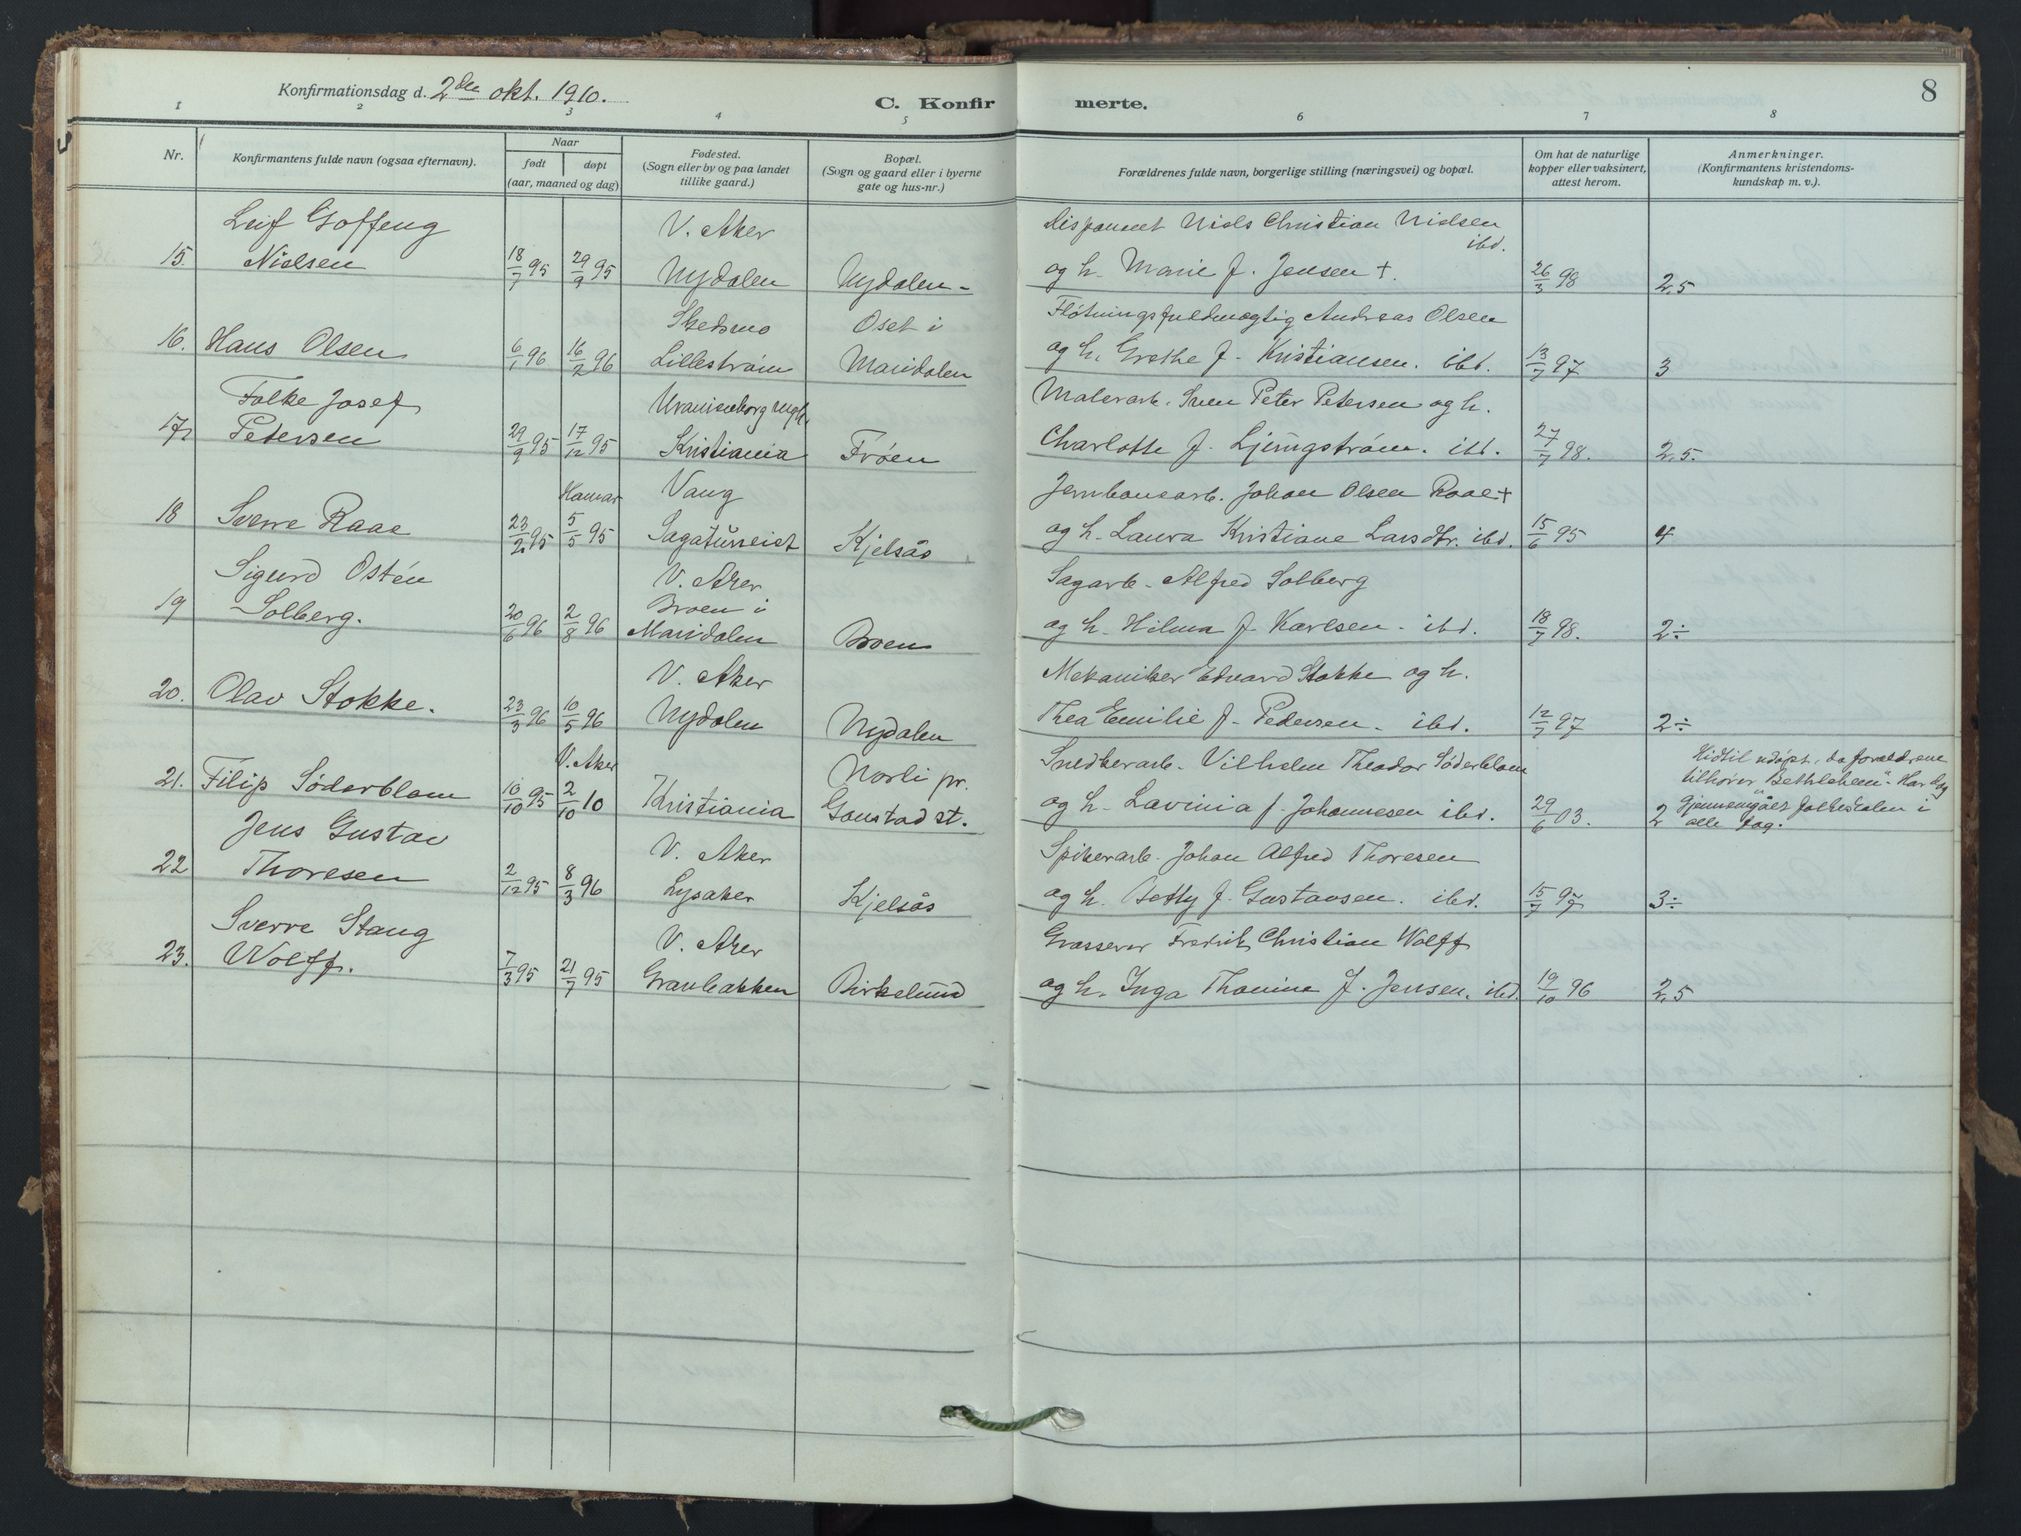 Konfirmationsdag d. 2den okt. 1910.
C. Konfir merte.
8
1 2 3 4 5 6 7 8
Nr. Konfirmantens fulde navn (ogsaa efternavn). Naar født døpt (aar, maaned og dag) Fødested. (Sogn eller by og paa landet tillike gaard.) Bopæl. (Sogn og gaard eller i byerne gate og hus-nr.) Forældrenes fulde navn, borgerlige stilling (næringsvei) og bopæl. Om hat de naturlige kopper eller vaksinert, attest herom. Anmerkninger. (Konfirmantens kristendomskundskap m. v.).
Leif Goffeng V. Aker Disponent Niels Christian Nielsen ibd.
15. Nielsen 18/7 95 29/9 95 Nydalen Nydalen og h. Marie f. Jensen +. 26/3 98 2,5
Skedsmo Oset i Fløtningsfuldmægtig Andreas Olsen
16. Hans Olsen 6/1 96 16/2 96 Lillestrøm Maridalen og h. Grethe f. Kristiansen. ibd. 13/7 97 3
Folke Josef Uranienborg mgh. Malerarb. Sven Peter Petersen og h.
17. Petersen 29/9 95 17/12 95 Kristiania Frøen Charlotte f. Ljungstrøm. ibd. 27/7 98. 2,5.
Hamar Vang Jernbanearb. Johan Olsen Raae +
18 Sverre Raae 23/2 95 5/5 95 Sagatunreist Kjelsås og h. Laura Kristiane Larsdtr. ibd. 15/6 95 4
Sigurd Ostén V. Aker Sagarb. Alfred Solberg
19 Solberg. 20/6 96 2/8 96 Broen i Maridalen Broen og h. Hilma f. Karlsen. ibd. 18/7 98. 2÷
V. Aker Mekaniker Edvard Stokke og h.
20. Olav Stokke. 23/3 96 10/5 96 Nydalen Nydalen Thea Emilie f. Pedersen. ibd. 12/7 97 2÷
V. Aker Norli pr. Snedkerarb. Vilhelm Theodor Søderblom Hidtil udøpt, da forældrene tilhører "Bethlehem". Har dog
21. Filip Søderblom 16/10 95 2/10 10 Kristiania Gaustad st. og h. Lavinia f. Johannesen ibd. 29/6 03. 2 gjennemgået folkeskolen i alle fag.
Jens Gustav V. Aker Spikerarb. Johan Alfred Thoresen
22 Thoresen 2/12 95 8/3 96 Lysaker Kjelsås og h. Betty f. Gustavsen. ibd. 15/7 97 3÷
Sverre Stang V. Aker Grosserer Fredrik Christian Wolff
23. Wolff. 7/3 95 21/7 95 Granbakken Birkelund og h. Inga Thomine f. Jensen. ibd. 19/10 96 2,5